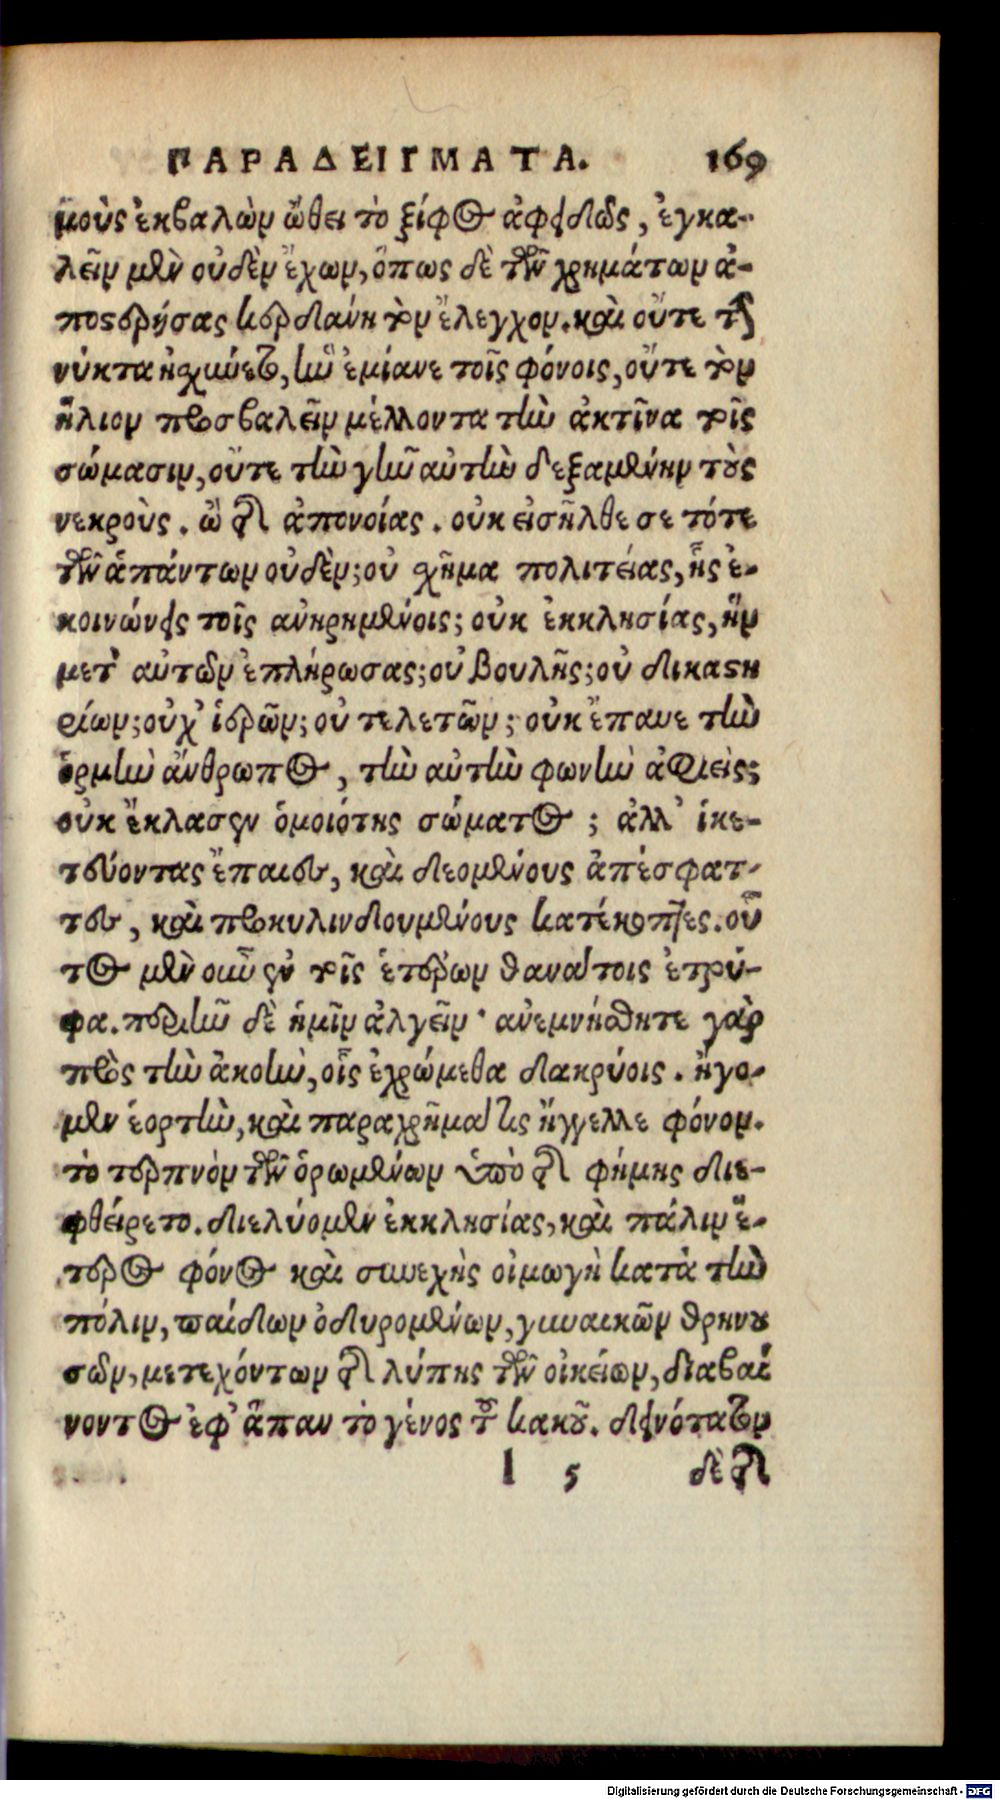 ΠΑΡΑΔΕΙΓΜΑΤΑ. 169
μοὺς ἐκβαλὼν ὤθει τὸ ξίφος ἀφειδῶς, ἐγκα-
λεῖν μὲν οὐδὲν ἔχων, ὅπως δὲ τῶν χρημάτων ἀ-
ποστερήσας κερδάνῃ τὸν ἔλεγχον. καὶ οὔτε τὴν
νύκτα ᾐσχύνετο, ἣν ἐμίανε τοῖς φόνοις, οὔτε τὸν
ἥλιον προσβαλεῖν μέλλοντα τὴν ἀκτῖνα τοῖς
σώμασιν, οὔτε τὴν γῆν αὐτὴν δεξαμένην τοὺς
νεκρούς. ὢ τῆς ἀπονοίας. οὐκ εἰσῆλθε σε τότε
τῶν ἁπάντων οὐδὲν; οὐ σχῆμα πολιτείας, ἧς ἐ-
κοινώνεις τοῖς ἀνῃρημένοις; οὐκ ἐκκλησίας, ἣν
μετ' αὐτῶν ἐπλήρωσας; οὐ βουλῆς; οὐ δικαστη
ρίων; οὐχ' ἱερῶν; οὐ τελετῶν; οὐκ ἔπαυε τὴν
ὁρμὴν ἄνθρωπος, τὴν αὐτὴν φωνὴν ἀφιείς;
οὐκ ἔκλασεν ὁμοιότης σώματος; ἀλλ' ἱκε-
τεύοντας ἔπαιεν, καὶ δεομένους ἀπέσφατ-
τεν, καὶ προκυλινδουμένους κατέκοπτες. οὗ
τος μὲν οὖν ἐν τοῖς ἑτέρων θανάτοις ἐτρύ-
φα. περιῆν δὲ ἡμῖν ἀλγεῖν· ἀνεμνήσθητε γὰρ
πρὸς τὴν ἀκοὴν, οἷς ἐχρώμεθα δακρύοις. ἤγο-
μεν ἑορτὴν, καὶ παραχρῆμά τις ἤγγελλε φόνον.
τὸ τερπνὸν τῶν ὁρωμένων ὑπὸ τῆς φήμης διε-
φθείρετο. διελύομεν ἐκκλησίας, καὶ πάλιν ἕ-
τερος φόνος καὶ συνεχὴς οἰμωγὴ κατὰ τὴν
πόλιν, παίδων ὀδυρομένων, γυναικῶν θρηνου
σῶν, μετεχόντων τῆς λύπης τῶν οἰκείων, διαβαί
νοντος ἐφ' ἅπαν τὸ γένος τοῦ κακοῦ. δεινότατον
l 5 δὲ τῆς
Digitalisierung gefördert durch die Deutsche Forschungsgemeinschaft - DFG